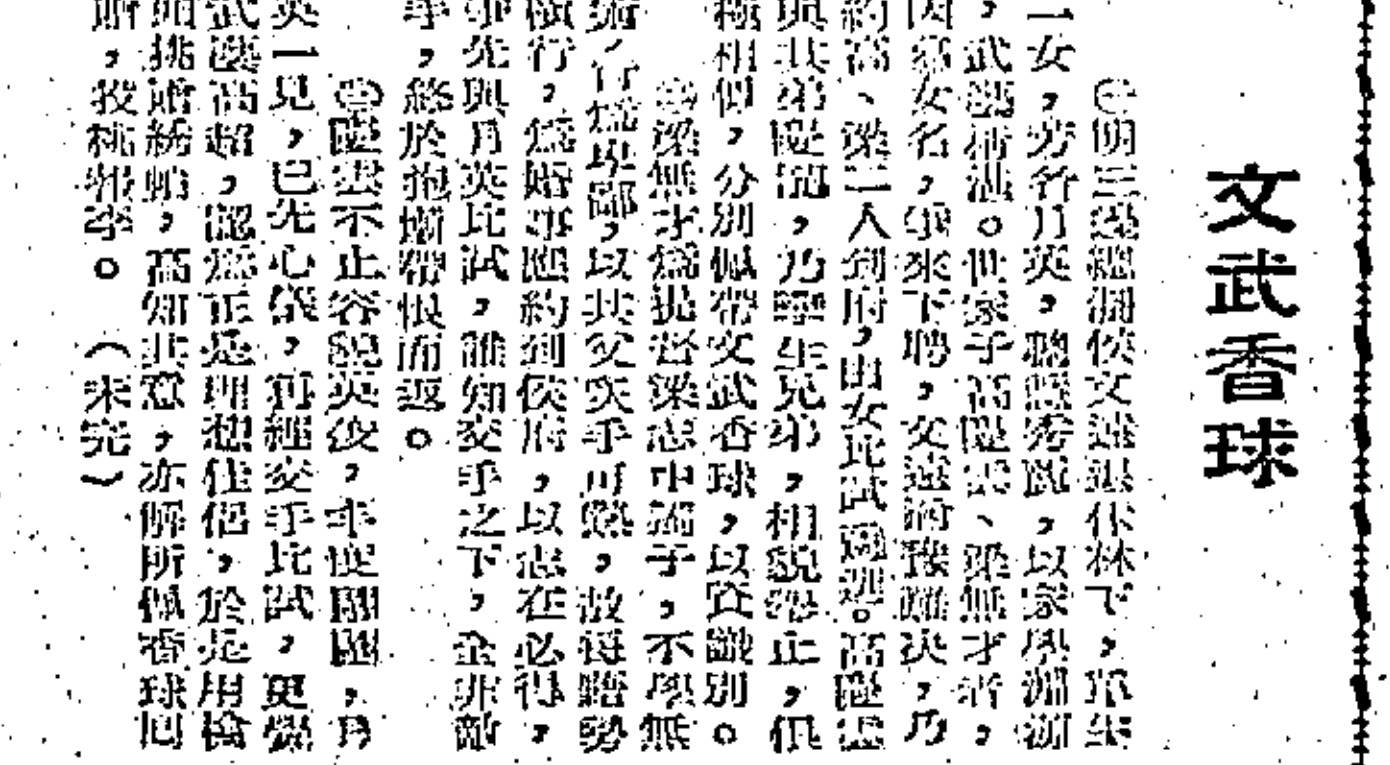 文武香球
㊀明三邊總制侯文遠退休林下,單生
一女,芳名月英,聰慧秀麗,以家學淵源
,武藝精湛。世家子高隆雲、梁無才者,
因慕女名,爭來下聘,文遠猶豫難決,乃
約高、梁二人到府,由女比試選。高隆雲
與其弟隆龍,乃孿生兄弟,相貌舉止,俱
極相似,分別佩帶文武香球,以資識別。
梁無才爲提督梁志中嫡子,不學無
術,行爲卑鄙,以其父炙手可熱,故得
橫行,爲婚事應約到侯府,以志在必得,
事先與月英比試,誰知交手之下,全非敵
手,終於抱慚帶恨而返。
㊂隆雲不止容貌英俊,丰度,月
英一見,已先心儀,再經交手比試,更覺
武藝高超,認爲正是理想佳侶,於是用槍
挑贈綉帕,高知其意,亦解所佩香球回
贈,投桃報李。 (未完)